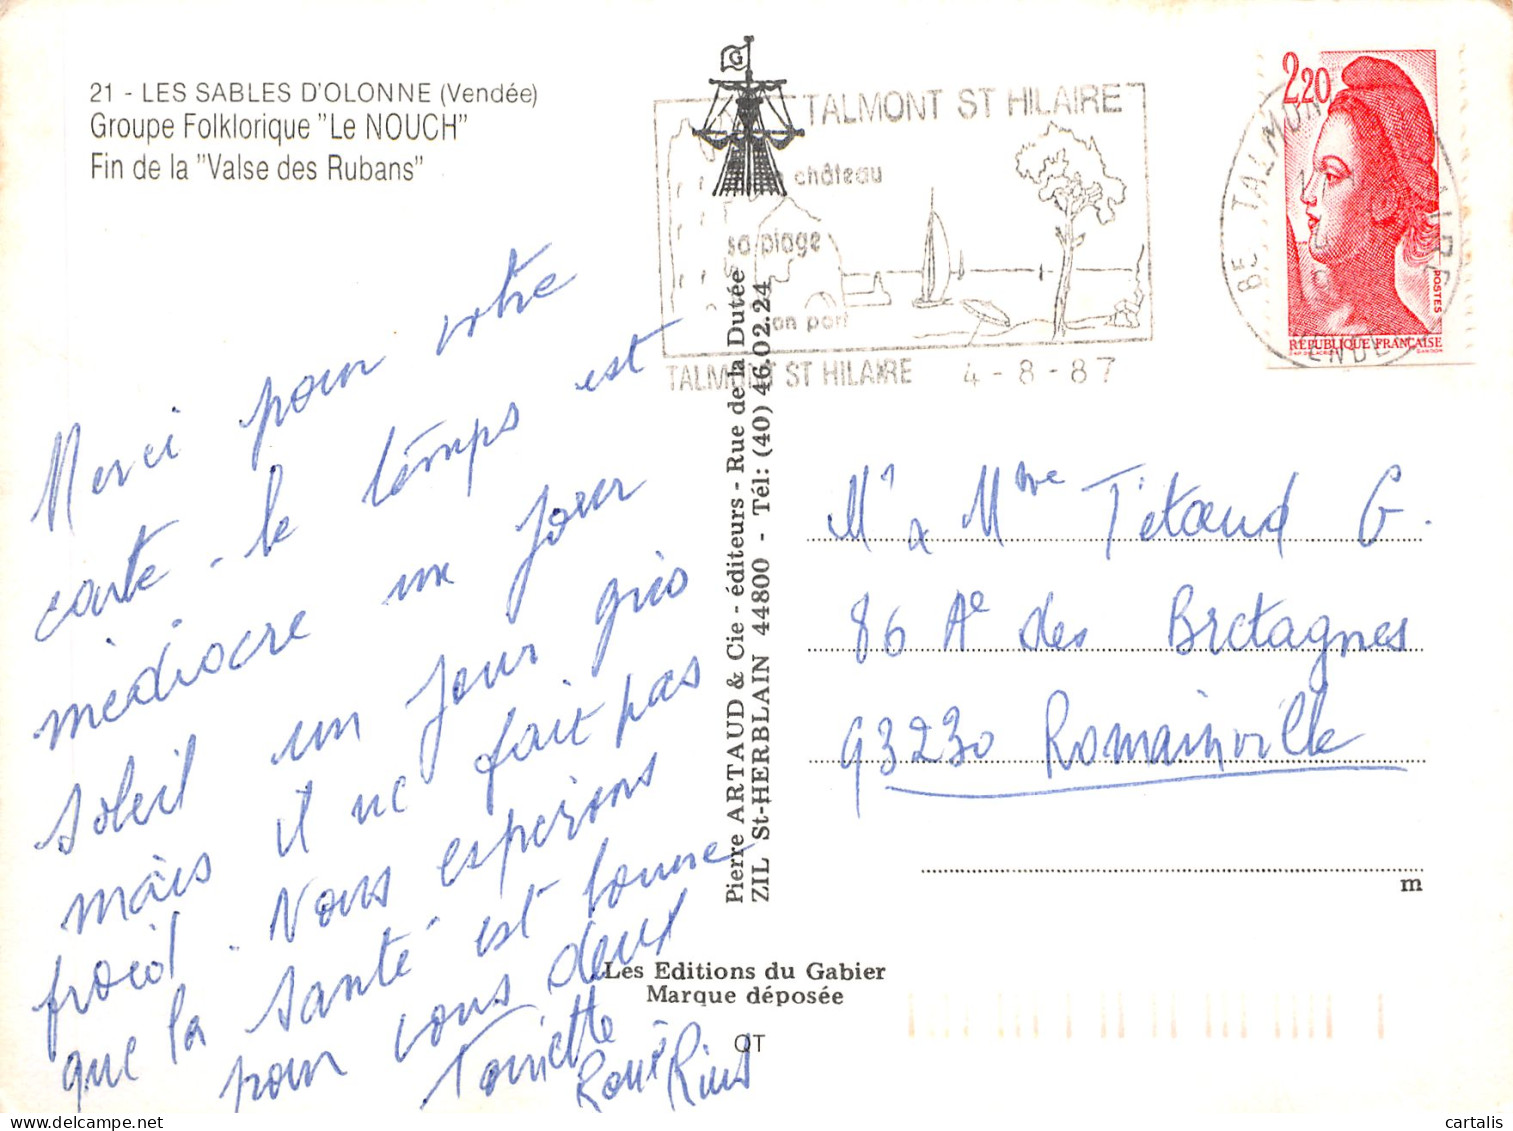 21 - LES SABLES D'OLONNE (Vendée)
Groupe Folklorique "Le NOUCH"
Fin de la "Valse des Rubans"
G
TALMONT ST HILAIRE
château
sa plage
son port
TALMONT ST HILAIRE 4-8-87
2,20
POSTES
RÉPUBLIQUE FRANÇAISE
Merci pour votre
carte - le temps est
médiocre un jour
soleil un jour gris
mais il ne fait pas
froid. Nous esperons
que la santé est bonne
pour vous deux
Toniette
René
Pierre ARTAUD & Cie - éditeurs - Rue de la Dutée
ZIL St-HERBLAIN 44800 - Tél: (40) 46.02.24
Mr & Mme Tétaud G.
86 Ae des Bretagnes
93230 Romainville
m
Les Editions du Gabier
Marque déposée
QT
cartalis